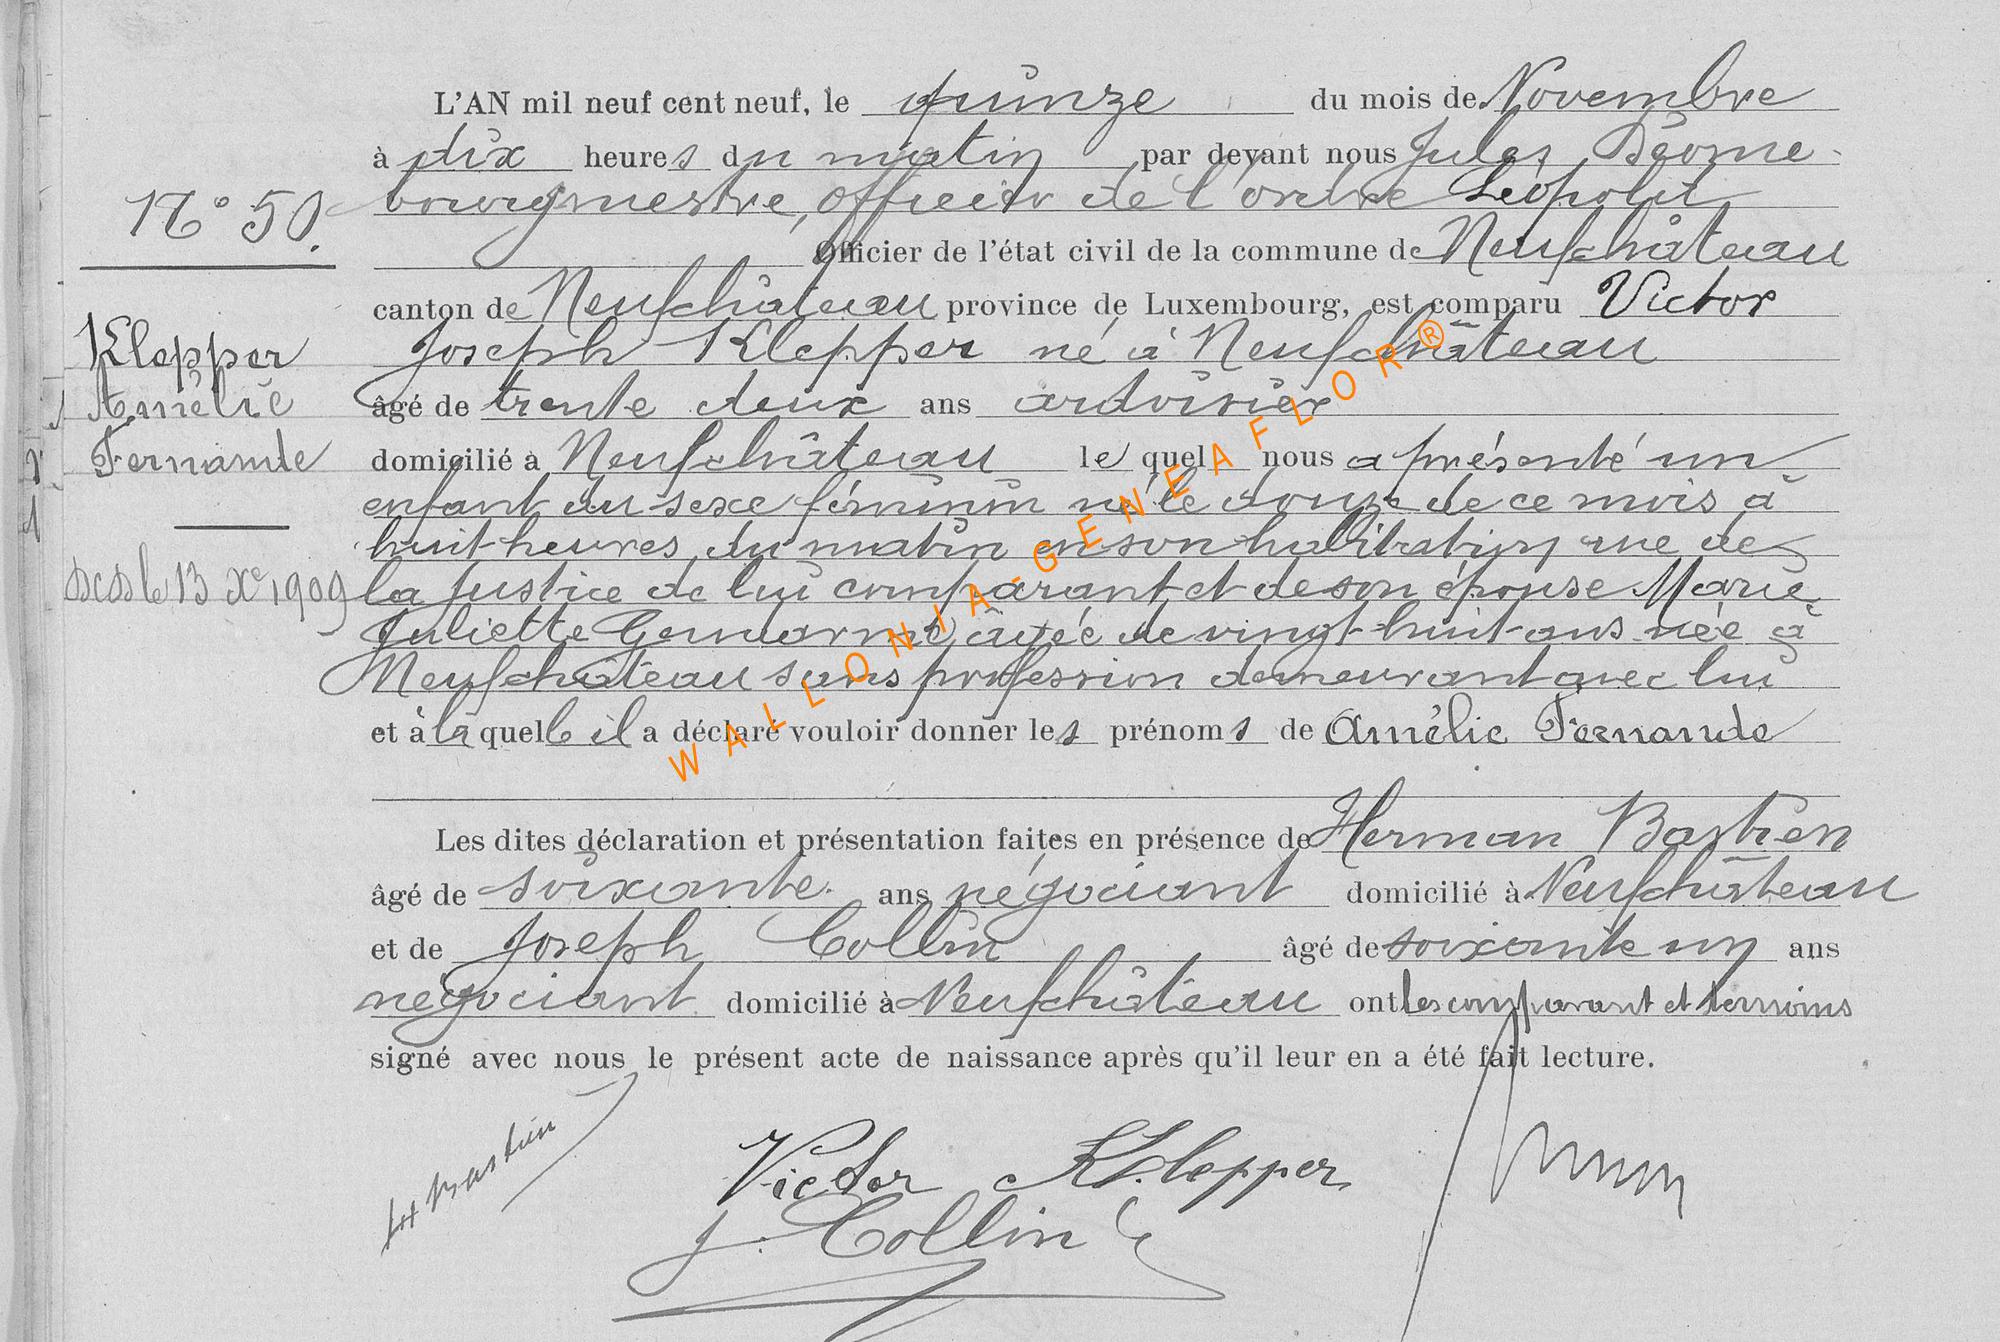 L'AN mil neuf cent neuf, le quinze du mois de Novembre
à dix heures du matin par devant nous Jules
bourgmestre, officier de l'ordre Léopold
Officier de l'état civil de la commune de Neufchâteau
canton de Neufchâteau province de Luxembourg, est comparu Victor
Joseph Klepper né à Neufchâteau
âgé de trente deux ans ardoisier
domicilié à Neufchâteau le quel nous a présenté un
enfant du sexe féminin né le douze de ce mois à
huit heures du matin en son habitation rue de
la Justice de lui comparant et de son épouse Marie
Juliette âgée de vingt-huit ans née à
Neufchâteau sans profession demeurant avec lui
et à laquelle il a déclaré vouloir donner les prénoms de Amélie Fernande
Les dites déclaration et présentation faites en présence de Herman Bastien
âgé de soixante ans négociant domicilié à Neufchâteau
et de Joseph Collin âgé de soixante un ans
négociant domicilié à Neufchâteau ont les comparant et témoins
signé avec nous le présent acte de naissance après qu'il leur en a été fait lecture.
N° 50.
Klepper
Amélie
Fernande
le 13 Xe 1909
H Bastien
Victor Klepper
J. Collin
WALLONIA-GENEAFLOR®